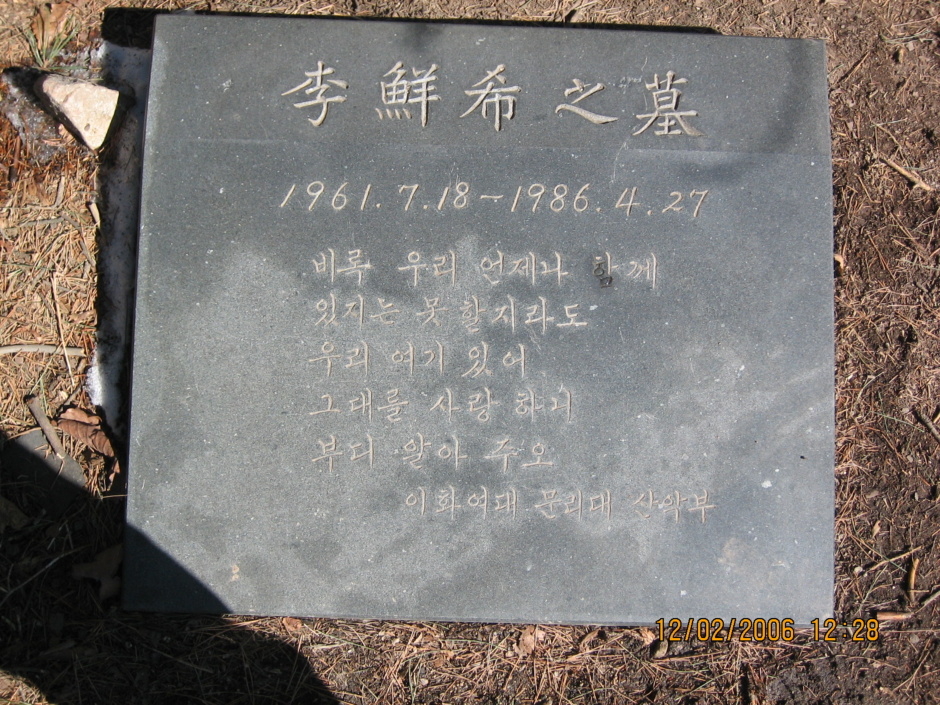 李鮮希之墓
1961.7.18~1986.4.27
비록 우리 언제나 함께
있지는 못할지라도
우리 여기 있어
그대를 사랑하니
부디 알아 주오
이화여대 문리대 산악부
12/02/2006 12:28